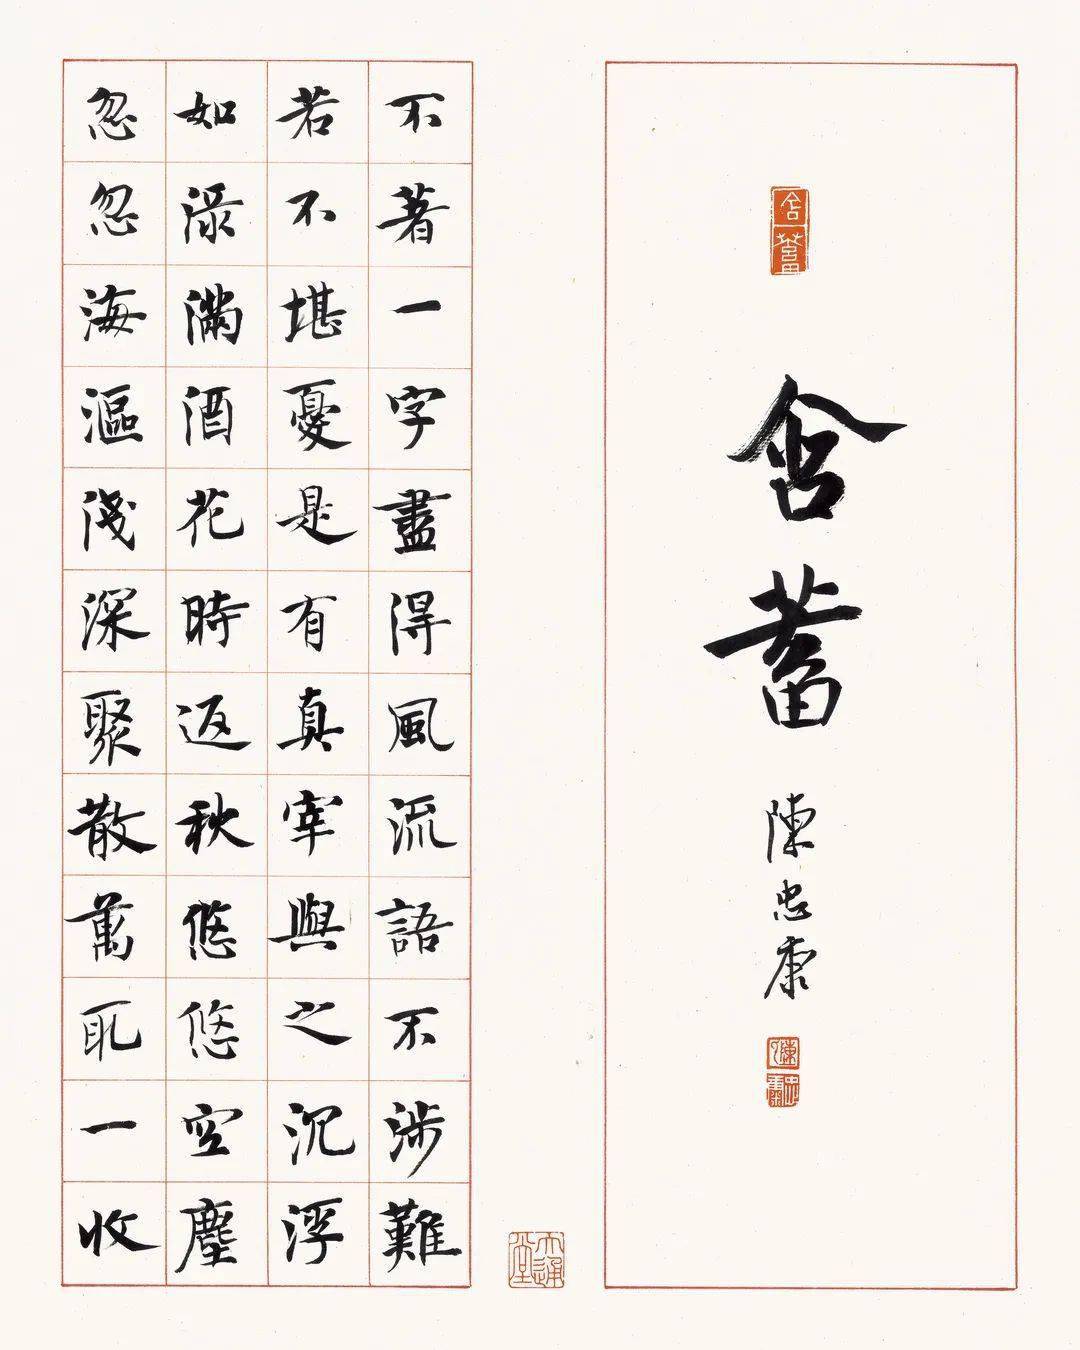 含蓄
含蓄
陳忠康
不著一字盡得風流語不涉難
若不堪憂是有真宰與之沉浮
如淥滿酒花時返秋悠悠空塵
忽忽海漚淺深聚散萬取一收